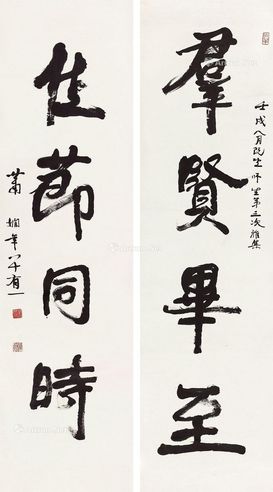 羣賢畢至
壬戌八月 第三次雅集
佳節同時
蕭嫻年八十有一